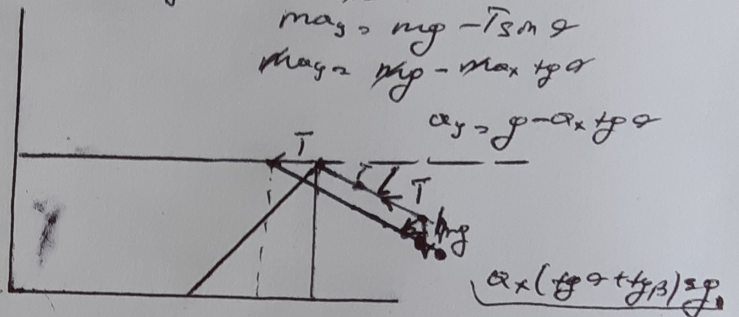 may = mg - T sin α
may = mg - max tg α
ay = g - ax tg α
T
T
mg
ax (tg α + tg β) = g